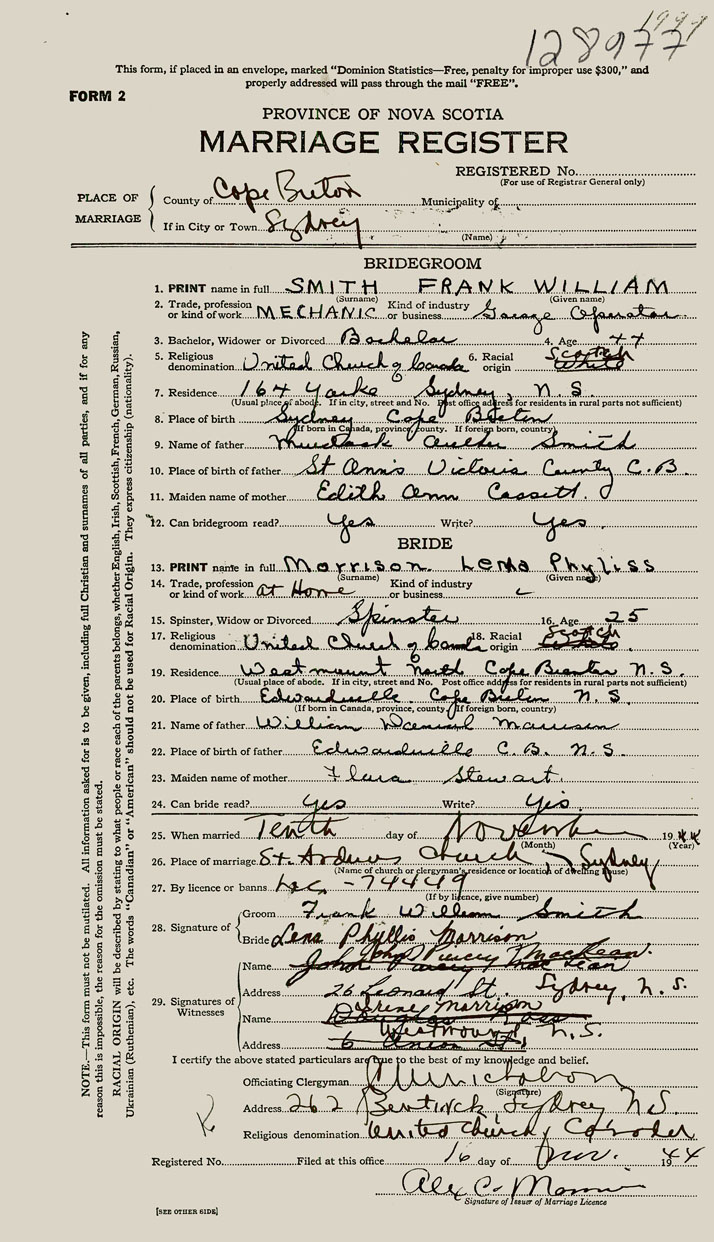 128977
This form, if placed in an envelope, marked "Dominion Statistics—Free, penalty for improper use $300," and
properly addressed will pass through the mail "FREE".
FORM 2
PROVINCE OF NOVA SCOTIA
MARRIAGE REGISTER
REGISTERED No.
(For use of Registrar General only)
PLACE OF MARRIAGE
County of Cape Breton Municipality of
If in City or Town Sydney
(Name)
BRIDEGROOM
1. PRINT name in full SMITH FRANK WILLIAM
(Surname) (Given name)
2. Trade, profession or kind of work MECHANIC Kind of industry or business Garage Operator
3. Bachelor, Widower or Divorced Bachelor 4. Age 44
5. Religious denomination United Church of Canada 6. Racial origin Scotch White
7. Residence 164 Sydney, N.S.
(Usual place of abode. If in city, street and No. Post office address for residents in rural parts not sufficient)
8. Place of birth Sydney Cape Breton
(If born in Canada, province, county. If foreign born, country)
9. Name of father Smith
10. Place of birth of father St Anns Victoria County C.B.
11. Maiden name of mother Edith Ann
12. Can bridegroom read? Yes Write? Yes.
BRIDE
13. PRINT name in full Morrison Lena Phyliss
(Surname) (Given name)
14. Trade, profession or kind of work at Home Kind of industry or business
15. Spinster, Widow or Divorced Spinster 16. Age 25
17. Religious denomination United Church of Canada 18. Racial origin Scotch
19. Residence Westmount North Cape Breton N.S.
(Usual place of abode. If in city, street and No. Post office address for residents in rural parts not sufficient)
20. Place of birth Edwardsville Cape Breton N.S.
(If born in Canada, province, county. If foreign born, country)
21. Name of father William Daniel Morrison
22. Place of birth of father Edwardsville C.B. N.S.
23. Maiden name of mother Flora Stewart.
24. Can bride read? Yes Write? Yes.
25. When married Tenth day of November 1944
(Month) (Year)
26. Place of marriage St. Andrews Church, Sydney
(Name of church or clergyman's residence or location of dwelling house)
27. By licence or banns Lic - 74449
(If by licence, give number)
28. Signature of
Groom Frank William Smith
Bride Lena Phyllis Morrison
29. Signatures of Witnesses
Name John MacLean
Address 26 Leonard St. Sydney, N.S.
Name Irene Morrison
Address Westmount N.S.
I certify the above stated particulars are true to the best of my knowledge and belief.
Officiating Clergyman
(Signature)
Address 262 Bentinck, Sydney N.S.
Religious denomination United Church, Canada
Registered No. Filed at this office 16 day of Nov. 1944
Alex C.
Signature of Issuer of Marriage Licence
[SEE OTHER SIDE]
NOTE.—This form must not be mutilated. All information asked for is to be given, including full Christian and surnames of all parties, and if for any
reason this is impossible, the reason for the omission must be stated.
RACIAL ORIGIN will be described by stating to what people or race each of the parents belongs, whether English, Irish, Scottish, French, German, Russian,
Ukrainian (Ruthenian), etc. The words "Canadian" or "American" should not be used for Racial Origin. They express citizenship (nationality).